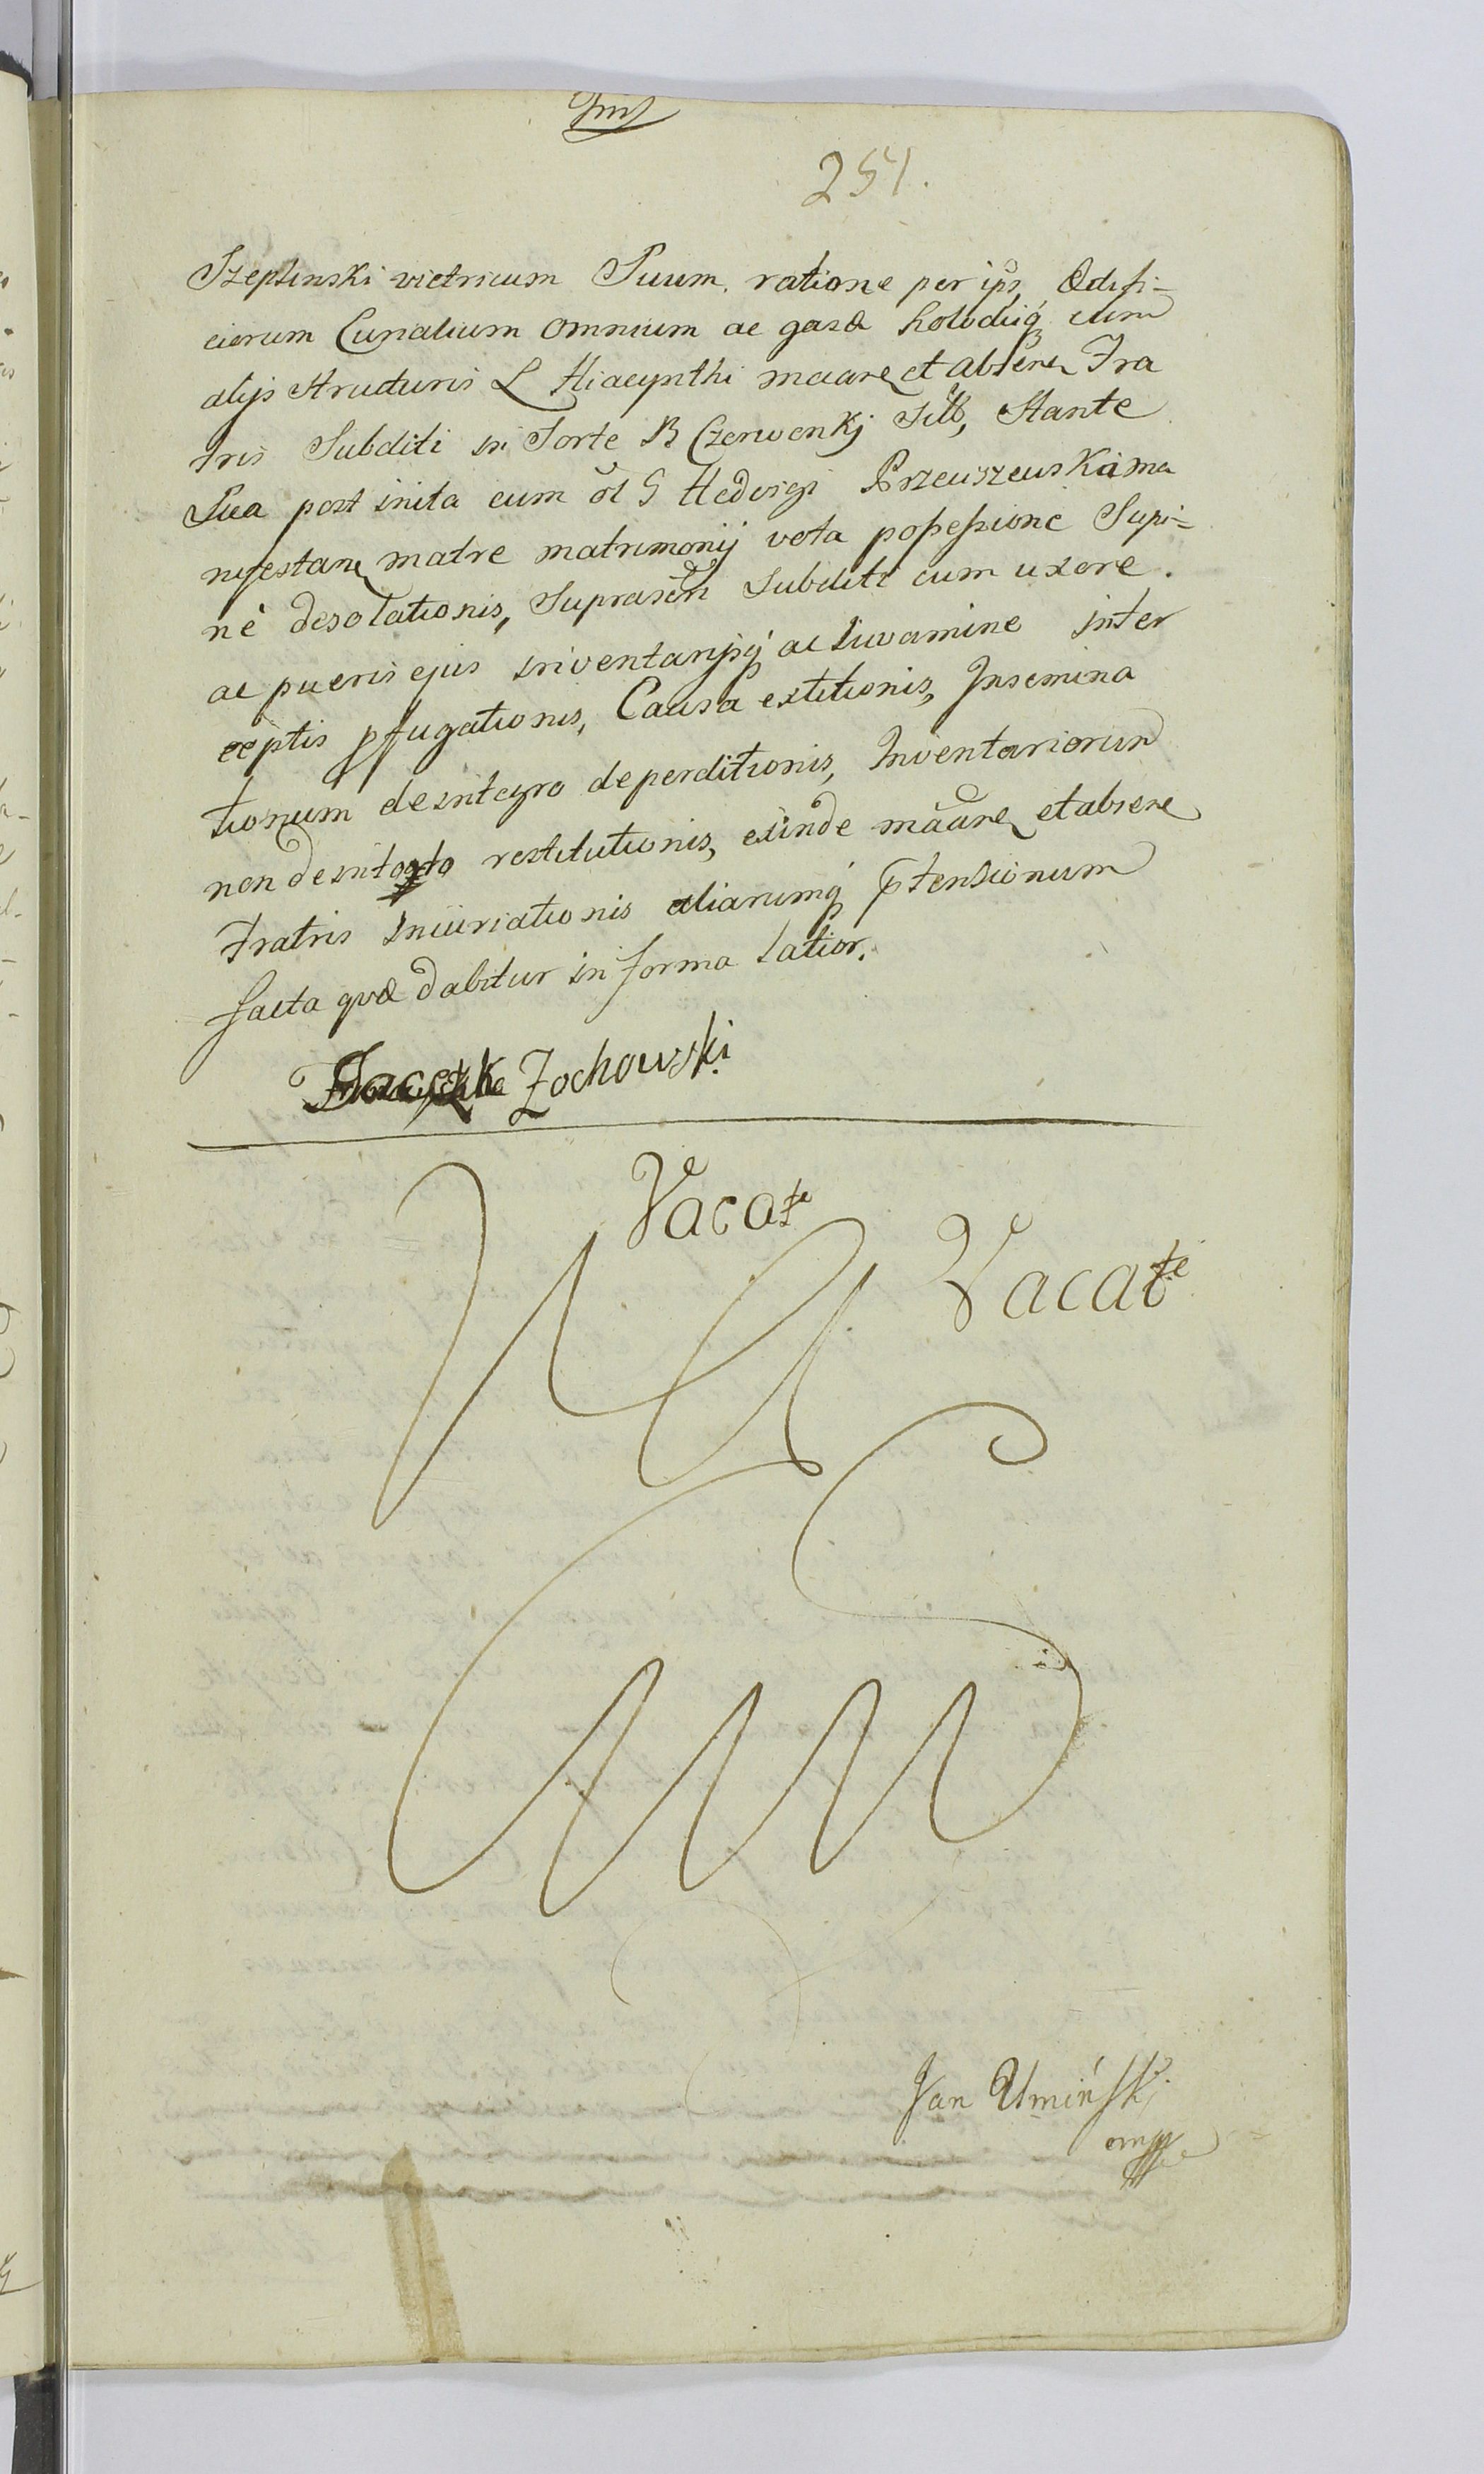 254.
Szeplinski victricum Suum, ratione per ips, Ædifi-
ciorum Curialium omnium ac gazæ holodiiq cum
alijs structuris L Hiacynthi maare et absen Fra
tris Subditi in Sorte B Czerwonkj Sitt, Stante
Sua post inita cum ol G Hedvigi Przeuszeuska ma
nifestan matre matrimonij vota possessione Supi-
nè desolationis, Suprascrn Subditi cum uxore.
ac pueris ejus inventarijsq ac iuvamine inter
ceptis pfugationis, Causa extitionis, Insemina
tionum de integro deperditionis, Inventariorum
non de restitutionis, exinde maare et absene
Fratris Iniuriationis aliarumq ptensionum
facta quæ dabitur in forma latior.
Zochowski
Vacat
Vacat
Jan Umiński
mp